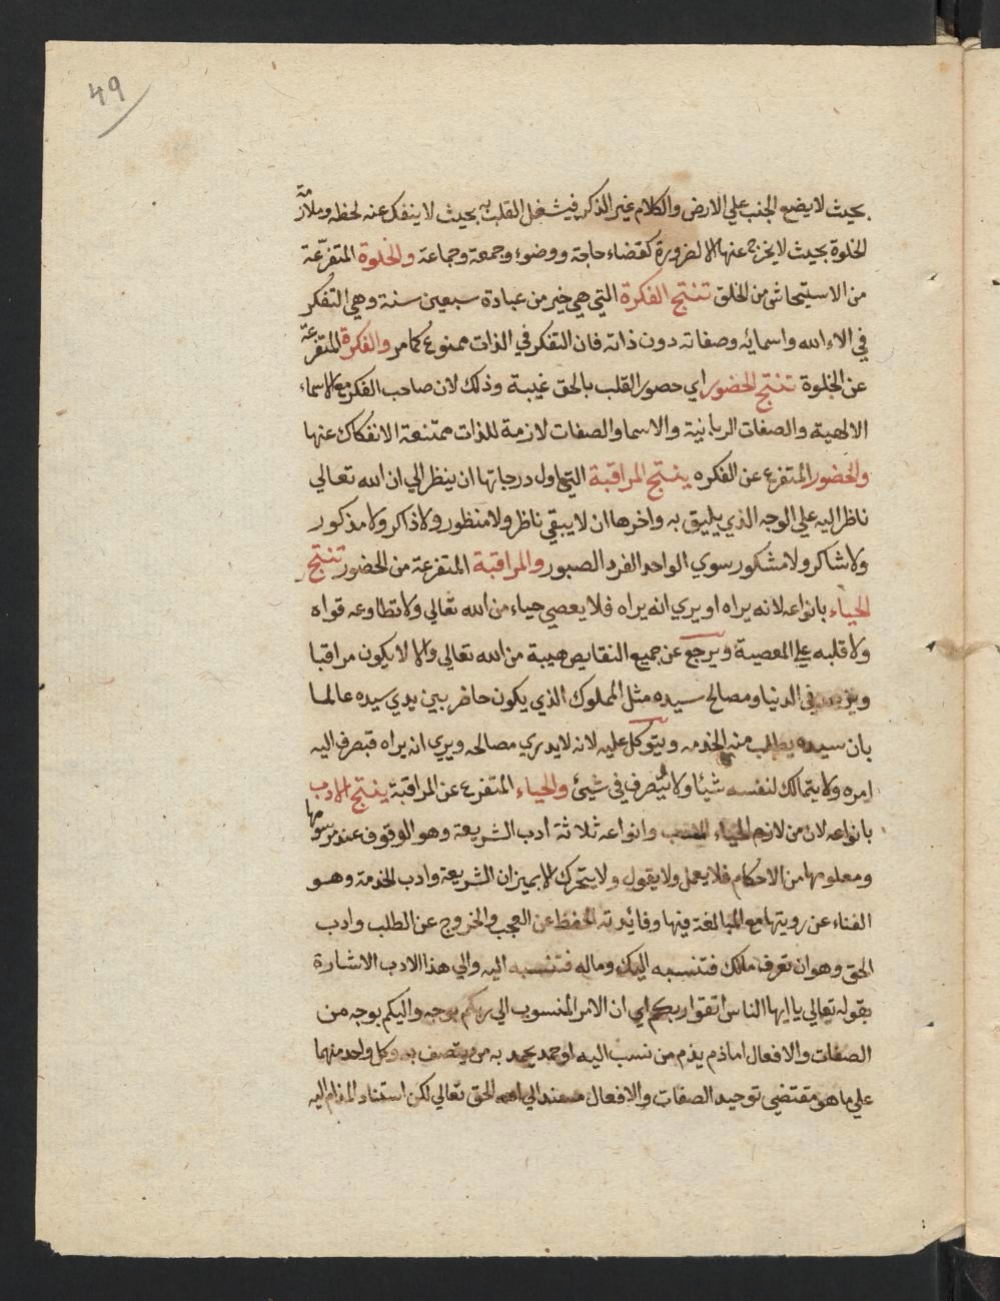 49
بحيث لا يضع الجنب علي الارض والكلام غير الذكر فيشغل القلب به بحيث لا ينفك عنه لحظه وملازمة
الخلوة بحيث لا يخرج عنها الا لضرورة كقضاء حاجة ووضوء وجمعة وجماعة والخلوة المتفرّعة
من الاستيحاش من الخلق تنتج الفكرة التي هي خير من عبادة سبعين سنة وهي التفكر
في الاء الله واسمايه وصفاته دون ذاته فان التفكر في الذات ممنوع كما مر والفكرة المتفرعة
عن الخلوة تنتج الحضور اي حصور القلب بالحق غيبة وذلك لان صاحب الفكر مع الاسماء
الالهية والصفات الربانية والاسما والصفات لازمة للذات ممتنعة الانفكاك عنها
والحضور المتفرع عن الفكره ينتج المراقبة التي اول درجاتها ان ينظر الي ان الله تعالي
ناظر اليه علي الوجه الذي يليق به واخرها ان لا يبقي ناظر ولا منظور ولا ذاكر ولا مذكور
ولا شاكر ولا مشكور سوي الواحد الفرد الصبور والمراقبة المتفرعة من الحضور تنتج
الحياء بانواعه لانه يراه او يري انه يراه فلا يعصي حياء من الله تعالي ولا تطاوعه قواه
ولا قلبه علي المعصية ويرجع عن جميع النقايص هيبة من الله تعالي والا لا يكون مراقبا
في الدنيا ومصالح سيده مثل المملوك الذي يكون حاضر بين يدي سيده عالما
بان سيده يطلب منه الخدمه ويتوكل عليه لانه لا يدري مصالحه ويري انه يراه فيصرف اليه
امره ولا يتمالك لنفسه شيئا ولا يتصرف في شيئ والحياء المتفرع عن المراقبة ينتج الادب
بانواعه لان من لازم الحياء الادب وانواعه ثلاثة ادب الشريعة وهو الوقوف عند مرسومها
ومعلومها من الاحكام فلا يعمل ولا يقول ولا يتحرك الا بميزان الشريعة وادب الخدمة وهو
الفناء عن رويتها مع المبالغة فيها وفائدته الحفظ عن العجب والخروج عن الطلب وادب
الحق وهو ان تعرف مالك فتنسبه اليك وماله فتنسبه اليه والي هذا الادب الاشارة
بقوله تعالي يا ايها الناس اتقوا ربكم اي ان الامر المنسوب الي ربكم بوجه واليكم بوجه من
الصفات والافعال اما ذم يذم من نسب اليه او حمد يحمد به من يتصف به وكل واحد منهما
علي ما هو مقتضي توحيد الصفات والافعال مسند الي الحق تعالي لكن استناد المذام اليه